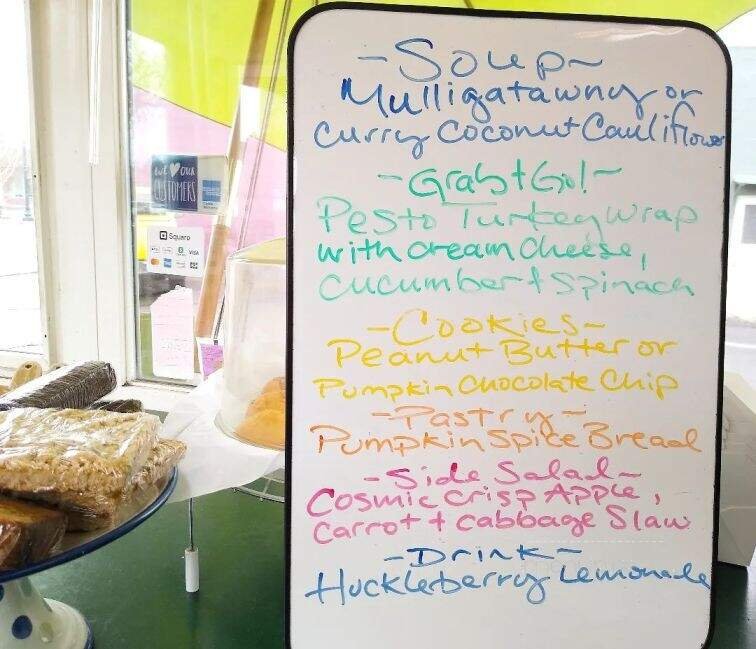 -Soup~
Mulligatawny or
Curry Coconut Cauliflower
-Grab+Go!-
Pesto Turkey Wrap
with cream cheese,
cucumber + Spinach
-Cookies-
Peanut Butter or
Pumpkin Chocolate Chip
-Pastry-
Pumpkin Spice Bread
-Side Salad-
Cosmic Crisp Apple,
Carrot + Cabbage Slaw
-Drink-
Huckleberry Lemonade
we ♥ our
CUSTOMERS
Square
VISA